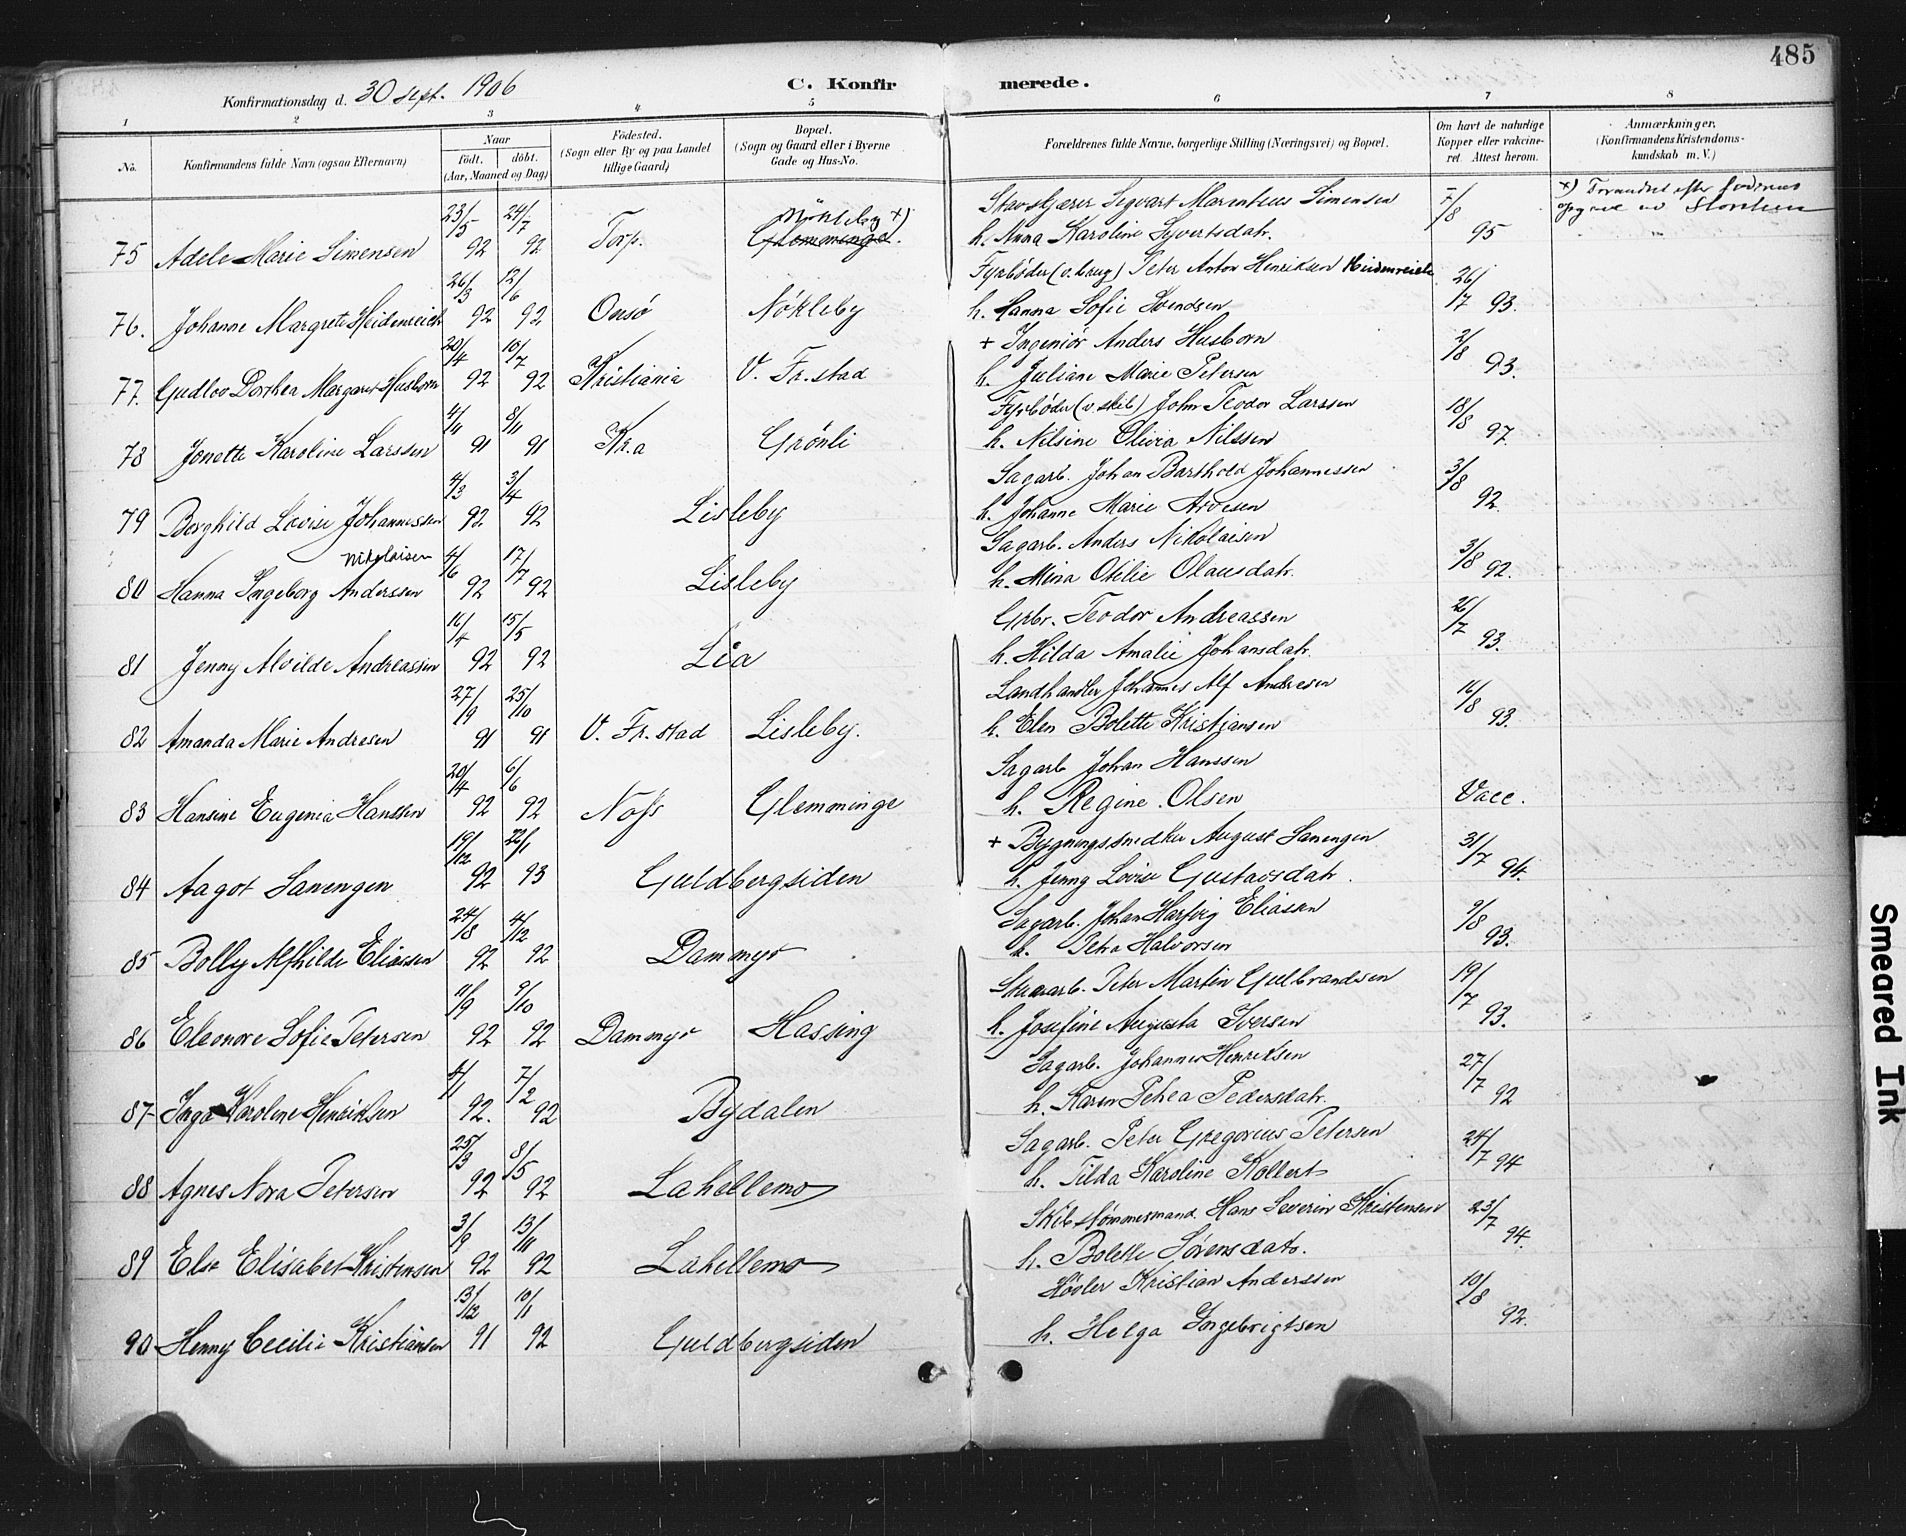 485
Konfirmationsdag d. 30 sept. 1906
C. Konfirmerede.
1 2 3 4 5 6 7 8
No. Konfirmandens fulde Navn (ogsaa Efternavn) Naar født. døbt. (Aar, Maaned og Dag) Fødested. (Sogn eller By og paa Landet tillige Gaard) Bopæl. (Sogn og Gaard eller i Byerne Gade og Hus-No. Forældrenes fulde Navne, borgerlige Stilling (Næringsvei) og Bopæl. Om havt de naturlige Kopper eller vaccineret Attest herom. Anmærkninger, (Konfirmandens Kristendomskundskab m. V.)
75 Adele Marie Simensen 23/5 92 24/7 92 Torp. Nökleby x) Glemminge. Stavskjærer Sigvart Marentius Simensen h. Anna Karoline Syvertsdatr. 7/8 95 x) Forandret efter
76. Johanne Margrete Heidenreich 26/3 92 12/6 92 Onsö Nökleby Fyrbøder (v. brug) Peter Anton Henriksen Heidenreich h. Hanna Sofie Svendsen 26/7 93.
77. Gudloo Dorthea Margaret Husborn 20/4 92 10/7 92 Kristiania V. Fr.stad + Ingeniör Anders Husborn h. Juliane Marie Petersen 2/8 93.
78 Jonette Karoline Larssen 4/11 91 8/11 91 Kr.a Grönli Fyrbøder (v. skib) John Teodor Larssen h. Nilsine Olivia Nilssen 18/8 97.
79 Borghild Lovise Johannessen 4/3 92 3/4 92 Lisleby Sagarb. Johan Barthold Johannessen h. Johanne Marie Arvesen 3/8 92
80 Hanna Ingeborg Anderssen Nikolaisen 4/6 92 17/7 92 Lisleby Sagarb. Anders Nikolaisen h. Mina Otelie Olausdatr. 3/8 92.
81 Jenny Alvilde Andreassen 16/4 92 15/5 92 Lia Grbr. Teodor Andreassen h. Hilda Amalie Johansdatr. 26/7 93.
82 Amanda Marie Andresen 27/9 91 25/10 91 V. Fr.stad Lisleby. Landhandler Johannes Alf Andresen h. Elen Bolette Kristiansen 16/8 93.
83 Hansine Eugenia Hanssen 20/4 92 6/6 92 Noss Glemminge Sagarb Johan Hanssen h. Regine Olsen Vacc.
84 Aagot Sanengen 19/12 92 22/1 93 Guldbergsiden + Bygningssnedker August Sanengen h. Jenny Lovise Gustavsdatr. 31/7 94.
85 Bolly Alfhilde Eliassen 24/8 92 4/12 92 Dammyr Sagarb. Johan Hartvig Eliassen h. Petra Halvorsen 9/8 93.
86 Eleonore Sofie Petersen 11/9 92 9/10 92 Dammyr Hassing Peter Martin Gulbrandsen h. Josefine Augusta Iversen 19/7 93.
87 Inga Karoline Henriksen 4/1 92. 7/2 92 Bydalen Sagarb. Johannes Henriksen h. Karen Petrea Pedersdatr. 27/7 92
88 Agnes Nora Petersen 25/3 92 8/5 92 Lahellemo Sagarb. Peter Gregorius Petersen h. Tilda Karoline Kollert 24/7 94
89 Else Elisabet Kristensen 3/9 92 13/11 92 Lahellemo Skibstömmermand Hans Severin Kristensen h. Bolette Sörensdatr. 23/7 94.
90 Henny Cecilie Kristiansen 13/12 91 10/1 92 Guldbergsiden Hövler Kristian Anderssen h. Helga Ingebrigtsen 10/8 92.
Smeared Ink